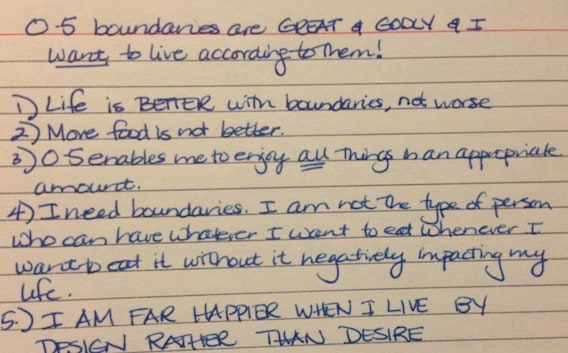 0-5 boundaries are GREAT & GODLY & I
want to live according to them!
1) Life is BETTER with boundaries, not worse
2) More food is not better.
3) 0-5 enables me to enjoy all things in an appropriate
amount.
4) I need boundaries. I am not the type of person
who can have whatever I want to eat whenever I
want to eat it without it negatively impacting my
life.
5.) I AM FAR HAPPIER WHEN I LIVE BY
DESIGN RATHER THAN DESIRE